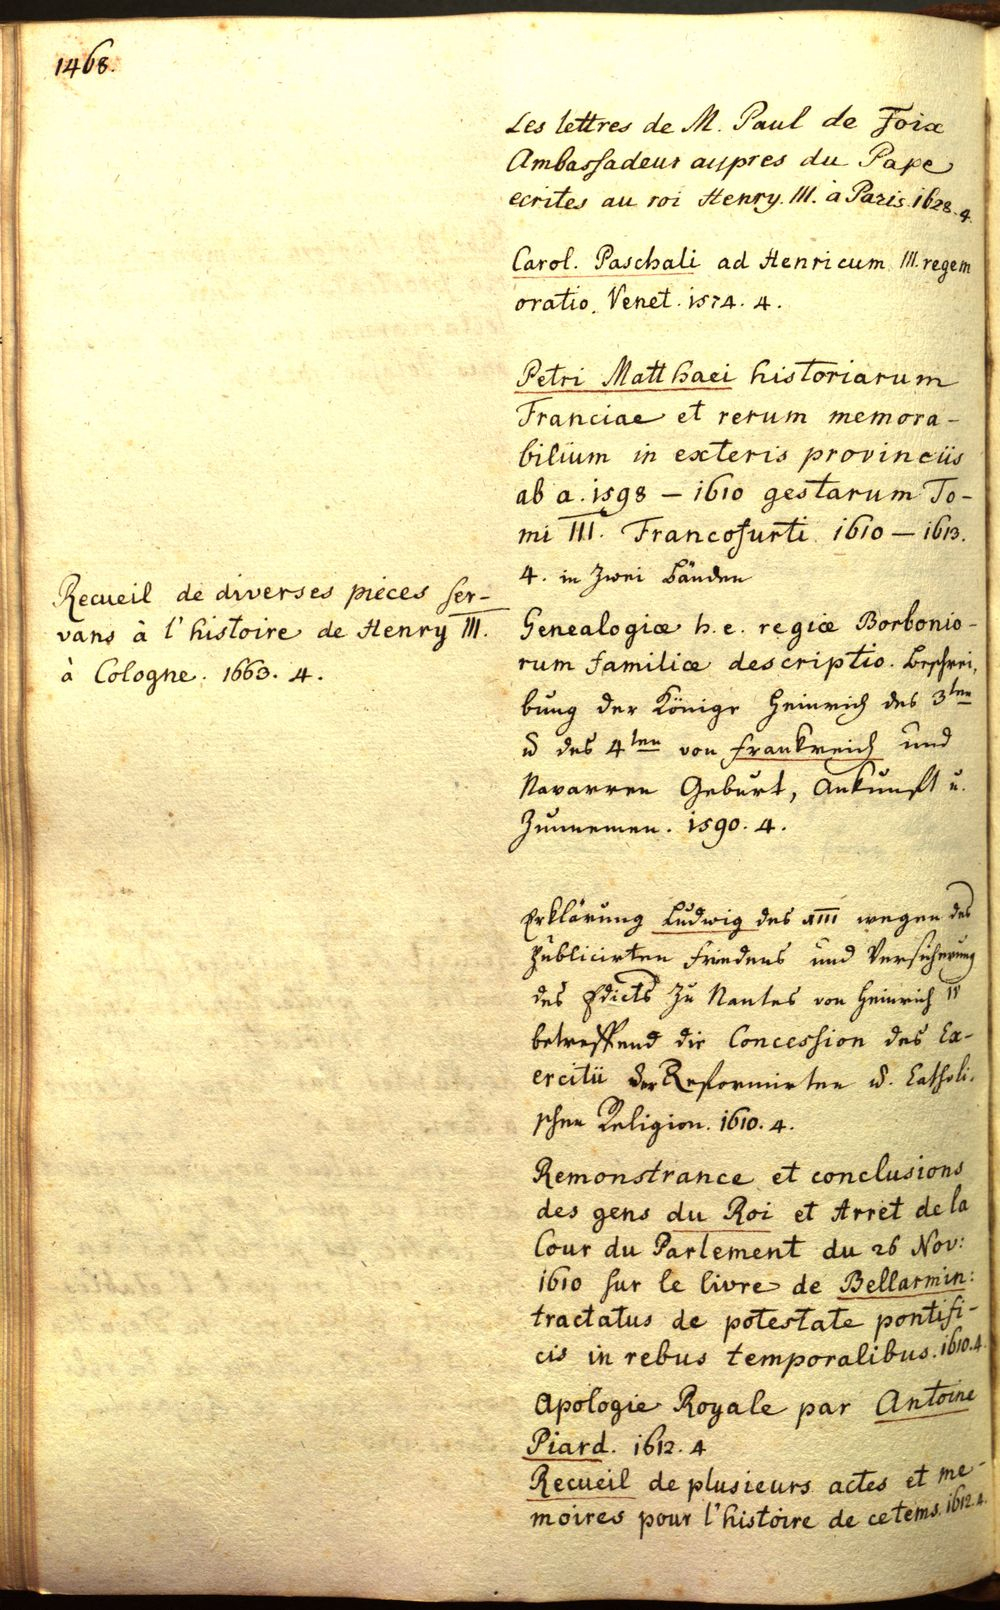 1468.
Les lettres de M. Paul de Foix
Ambassadeur aupres du Pape
ecrites au roi Henry III. à Paris. 1628. 4.
Carol. Paschali ad Henricum III. regem
oratio. Venet. 1574. 4.
Petri Matthaei historiarum
Franciae et rerum memora-
bilium in exteris provinciis
ab a. 1598 — 1610 gestarum To-
mi III. Francofurti 1610 — 1613.
4. in zwei Bänden
Recueil de diverses pieces ser-
vans à l'histoire de Henry III.
à Cologne. 1663. 4.
Genealogiæ h. e. regiæ Borbonio-
rum familiæ descriptio. Beschrei-
bung der Könige Heinrich des 3ten
u des 4ten von Frankreich und
Navarren Geburt, Ankunft u.
Zunnemen. 1590. 4.
Erklärung Ludwig des XIII wegen des
publicirten Friedens und Versicherung
des Edicts zu Nantes von Heinrich IV
betreffend die Concession des Ex-
ercitii der Reformirten u. Catholi-
schen Religion. 1610. 4.
Remonstrance et conclusions
des gens du Roi et Arret de la
Cour du Parlement du 26 Nov:
1610 sur le livre de Bellarmin:
tractatus de potestate pontifi-
cis in rebus temporalibus. 1610. 4.
Apologie Royale par Antoine
Piard. 1612. 4
Recueil de plusieurs actes et me-
moires pour l'histoire de ce tems. 1612. 4.